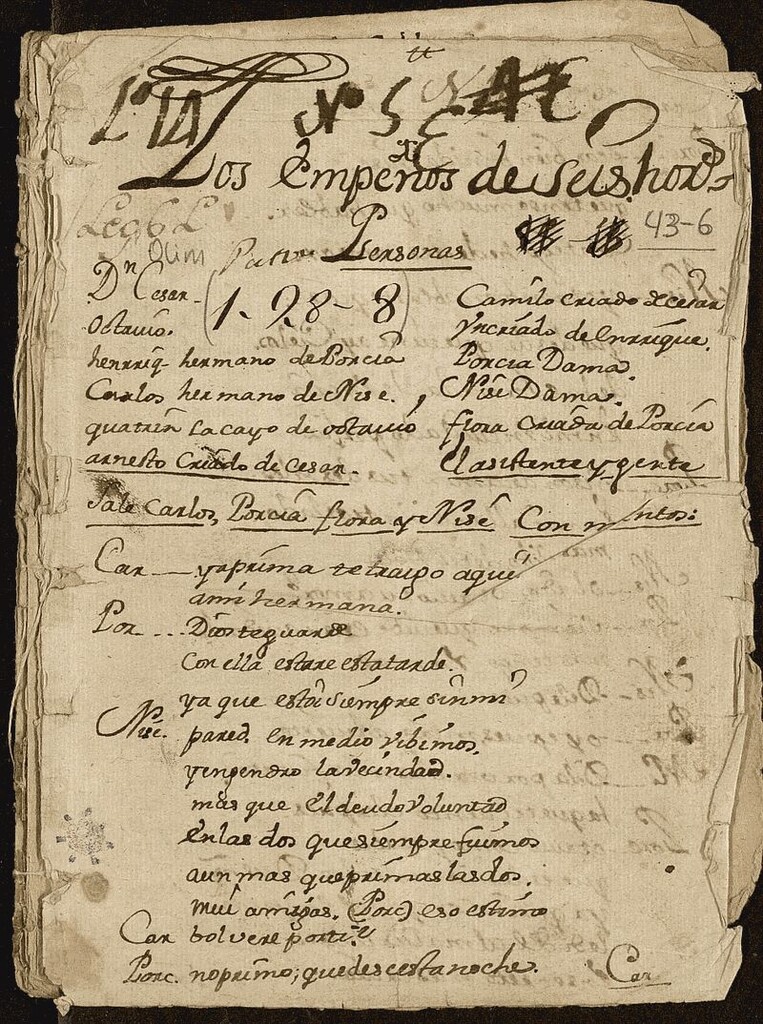 Lo 14 No 5
Los Empeños de Seis horas
Leg 6
43-6
Olim Personas
(1-98-8)
Dn Cesar.
Octavio.
henrriq- hermano de Porcia
Carlos hermano de Nise.
quatrin Lacayo de octavio
arnesto Criado de Cesar.
Camilo criado de cesar
Yn criado de Enrrique.
Porcia Dama.
Nise Dama.
flora Criada de Porcia
El asistente y gente
Sale Carlos, Porcia flora y Nise Con mantos:
Car — ya prima te traigo aqui
a mi hermana.
Por — Dios te guarde
Con ella estare esta tarde.
ya que està siempre sin mi
Nise. pared en medio vibimos,
y enjendro la vecindad.
mas que El deudo voluntad
En las dos que siempre fuimos
aun mas que primas las dos,
mui amigas. (Porc) eso estimo
Car bolvere por ti.
Porc. no primo; quedese esta noche.
Car